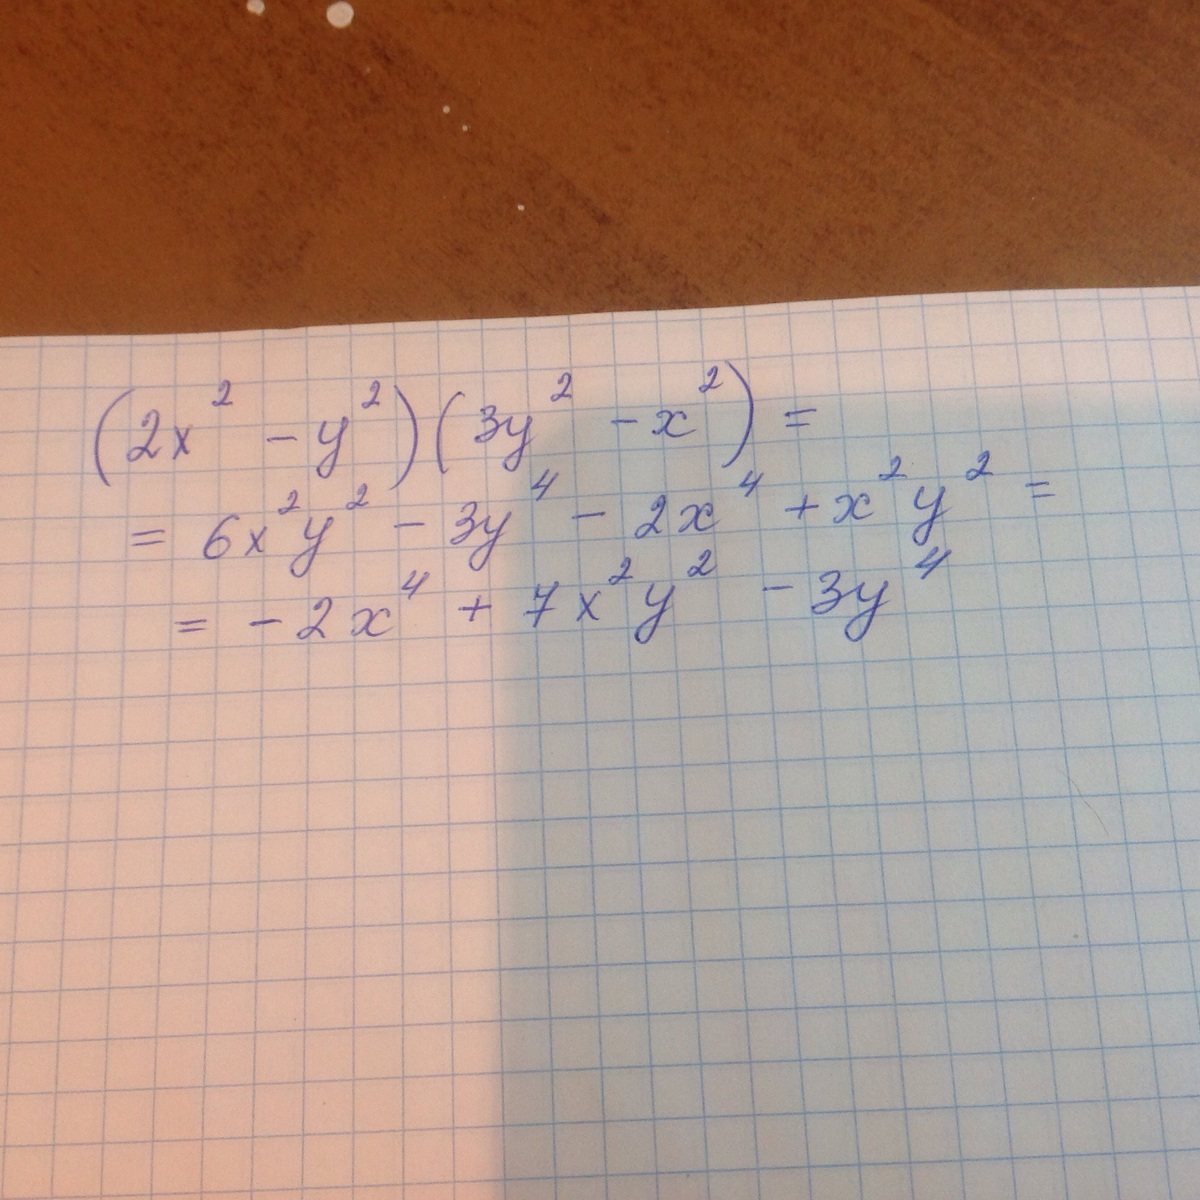 (2x² - y²)(3y² - x²) =
= 6x²y² - 3y⁴ - 2x⁴ + x²y² =
= - 2x⁴ + 7x²y² - 3y⁴